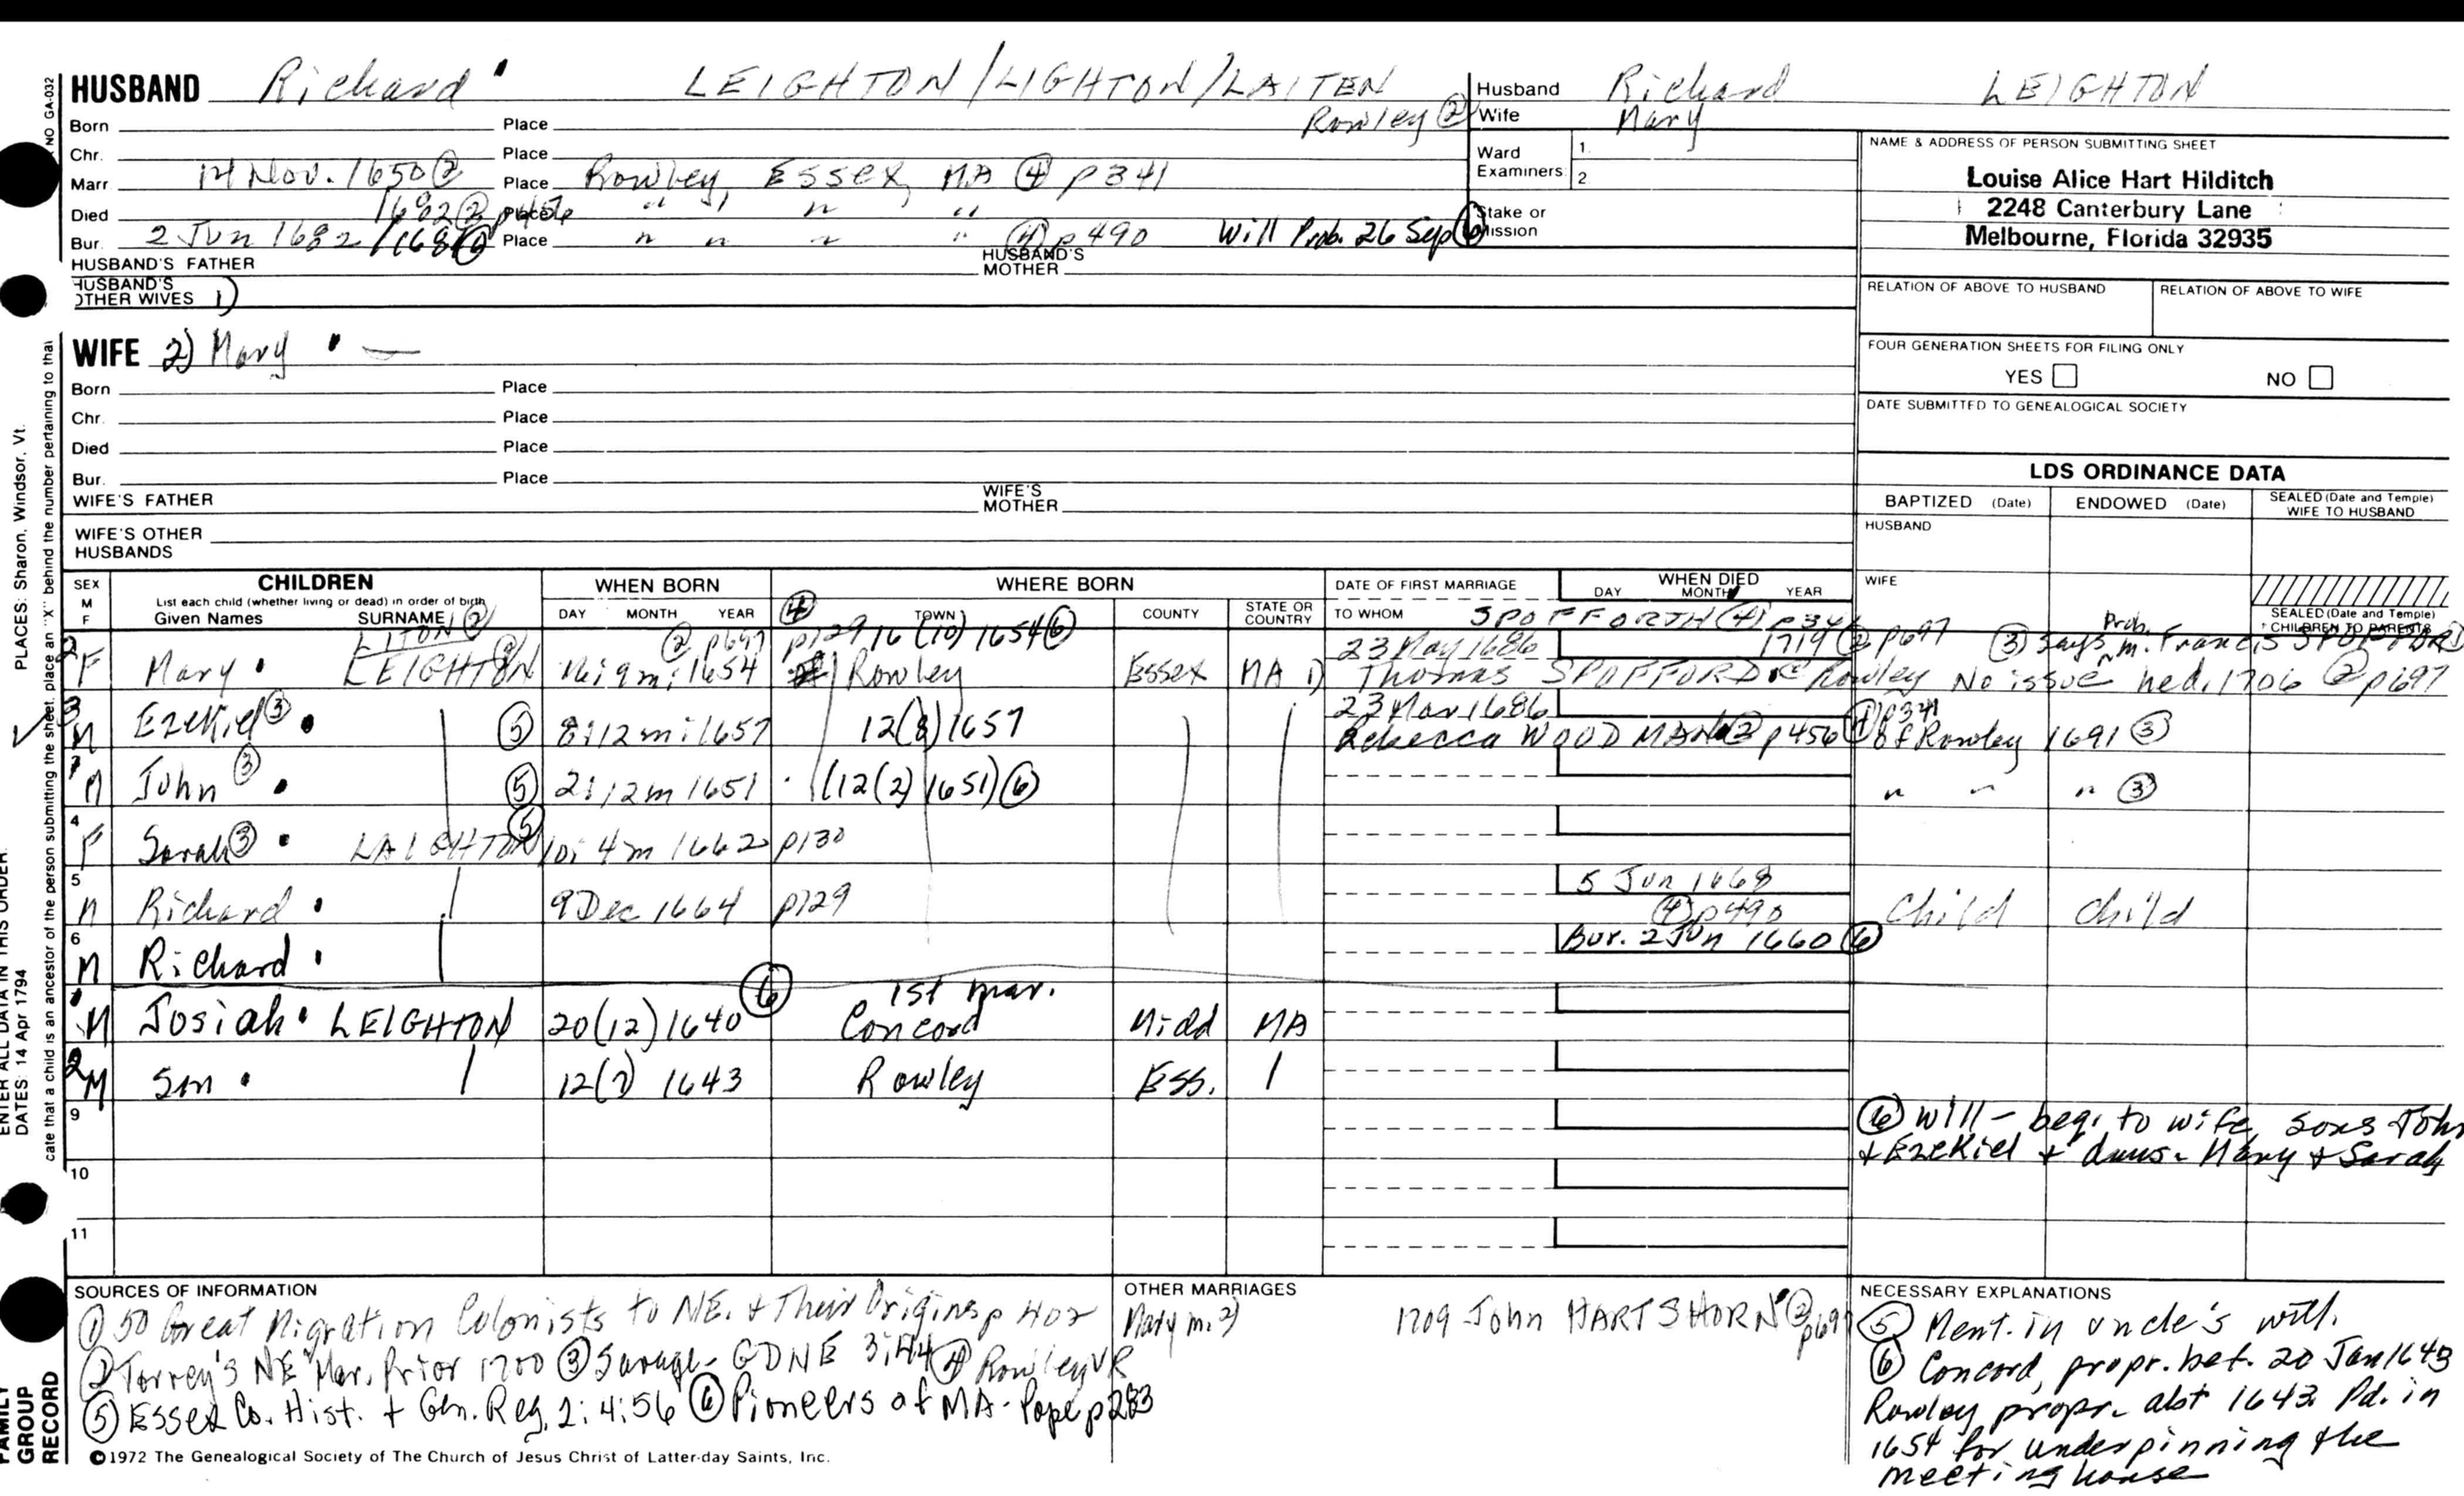 HUSBAND Richard LEIGHTON/LIGHTON/LAITEN
Husband Richard LEIGHTON
Wife Mary
Born Place Rowley ②
Chr. Place
Marr 14 Nov. 1650 ② Place Rowley, Essex, MA ④ p341
Died 1682 ② p456 Place " " "
Bur. 2 Jun 1682/ Place " " " " ④ p490 Will Prob. 26 Sep ⑥
HUSBAND'S FATHER HUSBAND'S MOTHER
HUSBAND'S OTHER WIVES 1)
Ward Examiners: 1. 2.
Stake or Mission
NAME & ADDRESS OF PERSON SUBMITTING SHEET
Louise Alice Hart Hilditch
2248 Canterbury Lane
Melbourne, Florida 32935
RELATION OF ABOVE TO HUSBAND RELATION OF ABOVE TO WIFE
FOUR GENERATION SHEETS FOR FILING ONLY
YES NO
DATE SUBMITTED TO GENEALOGICAL SOCIETY
WIFE 2) Mary
Born Place
Chr. Place
Died Place
Bur. Place
WIFE'S FATHER WIFE'S MOTHER
WIFE'S OTHER HUSBANDS
LDS ORDINANCE DATA
BAPTIZED (Date) ENDOWED (Date) SEALED (Date and Temple) WIFE TO HUSBAND
HUSBAND
WIFE
SEALED (Date and Temple) CHILDREN TO PARENTS
SEX M F
CHILDREN
List each child (whether living or dead) in order of birth
Given Names SURNAME
WHEN BORN
DAY MONTH YEAR
WHERE BORN
④ TOWN COUNTY STATE OR COUNTRY
DATE OF FIRST MARRIAGE
TO WHOM
WHEN DIED
DAY MONTH YEAR
SPOFFORTH ④ p341
LITON ② ② p697 p129 16 (10) 1654 ⑥ 23 May 1686 1719 ② p697 ③ Says Prob. m. Francis SPOFFORD
2 F Mary LEIGHTON 1654 Rowley Essex MA 1) Thomas SPOFFORD Rowley No issue he d. 1706 ② p697
3 M Ezekiel ③ ⑤ 8:12m:1657 12(8)1657 23 Mar 1686 Rebecca WOODMAN ② p456 ④ p341 of Rowley 1691 ③
1 M John ③ ⑤ 2:12m 1651 (12(2)1651) ⑥ " " " ③
4 F Sarah ③ LAIGHTON ⑤ 10: 4m 1662 p130
5 M Richard 9 Dec 1664 p129 5 Jun 1668 ④ p490 Child Child
6 M Richard Bur. 2 Jun 1660 ⑥
1st mar.
1 M Josiah LEIGHTON 20(12)1640 ⑥ Concord Midd MA
2 M Son 1643 Rowley Ess.
9
10
11
⑥ Will - beq. to wife, sons John
+ Ezekiel + daus. Mary + Sarah
SOURCES OF INFORMATION
① 50 Great Migration Colonists to NE. + Their Origins p 402
② Torrey's NE Mar. Prior 1700 ③ Savage - GDNE 3:44 ④ Rowley VR
⑤ Essex Co. Hist. + Gen. Reg. 2:4:56 ⑥ Pioneers of MA - Pope p283
OTHER MARRIAGES
Mary m. 2) 1709 John HARTSHORN ② p697
NECESSARY EXPLANATIONS
⑤ Ment. in uncle's will.
⑥ Concord, propr. bef. 20 Jan 1643
Rowley propr. abt 1643. Pd. in
1654 for underpinning the
meeting house
©1972 The Genealogical Society of The Church of Jesus Christ of Latter-day Saints, Inc.
NO GA-032
cate that a child is an ancestor of the person submitting the sheet, place an "X" behind the number pertaining to that
PLACES: Sharon, Windsor, Vt.
ENTER ALL DATA IN THIS ORDER:
DATES: 14 Apr 1794
FAMILY GROUP RECORD